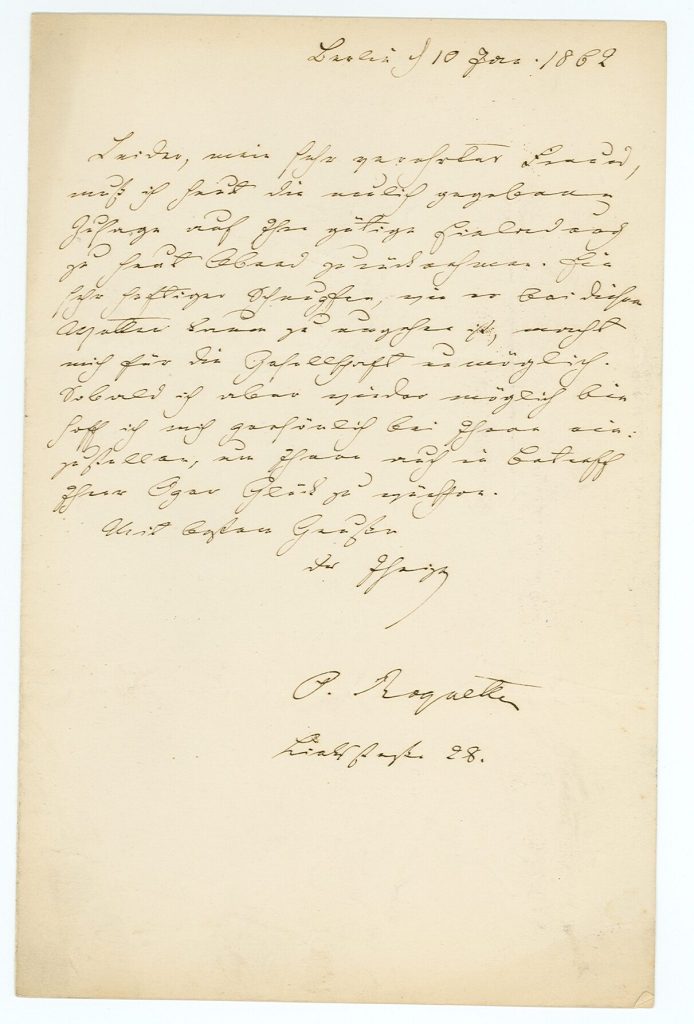 Berlin d 10 Jan. 1862
Leider, mein sehr verehrter Freund,
muß ich heut die neulich gegebene
Zusage auf Ihre gütige Einladung
zu heut Abend zurücknehmen. Ein
sehr heftiger Schnupfen, wie er bei diesem
Wetter kaum zu umgehen ist, macht
mich für die Gesellschaft unmöglich.
Sobald ich aber wieder möglich bin
hoff ich mich persönlich bei Ihnen ein:
zustellen, um Ihnen auch in Betreff
Ihrer Oper Glück zu wünschen.
Mit besten Grüßen
der Ihrige
O. Roquette
Linkstraße 28.